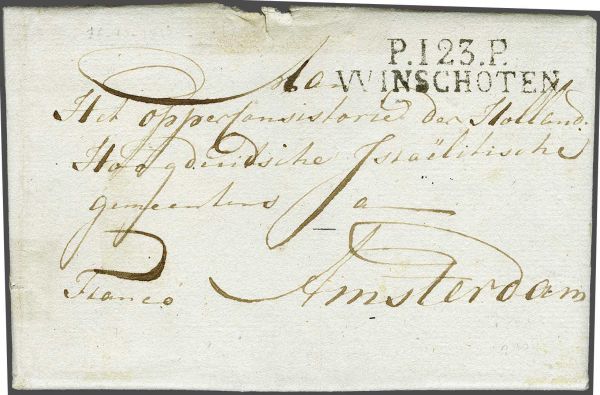 P.123.P.
WINSCHOTEN
Aan
Het opperconsistorie der Holland:
Hoogduidsche Israëlitische
gemeentens a
Amsterdam
Franco